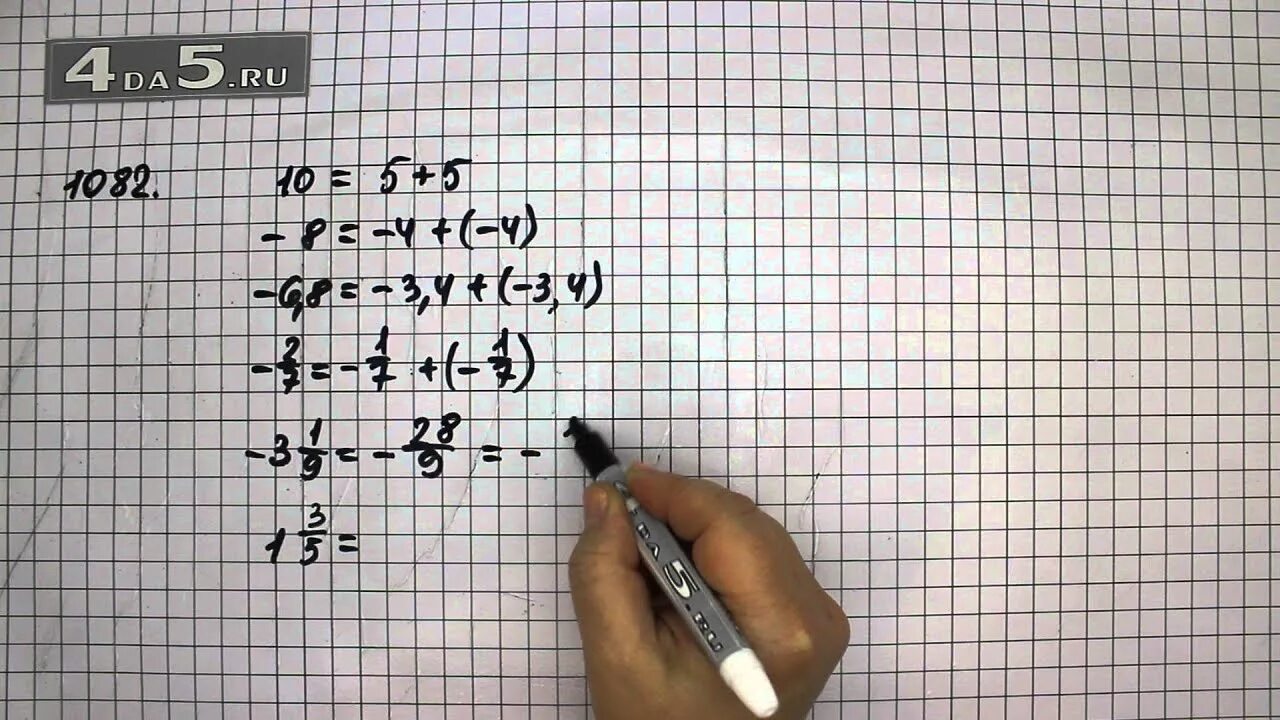 4DA5.RU
1082. 10 = 5 + 5
- 8 = -4 + (-4)
-6,8 = -3,4 + (-3,4)
-2/7 = -1/7 + (-1/7)
-3 1/9 = -28/9 = -
1 3/5 =
DA5.RU